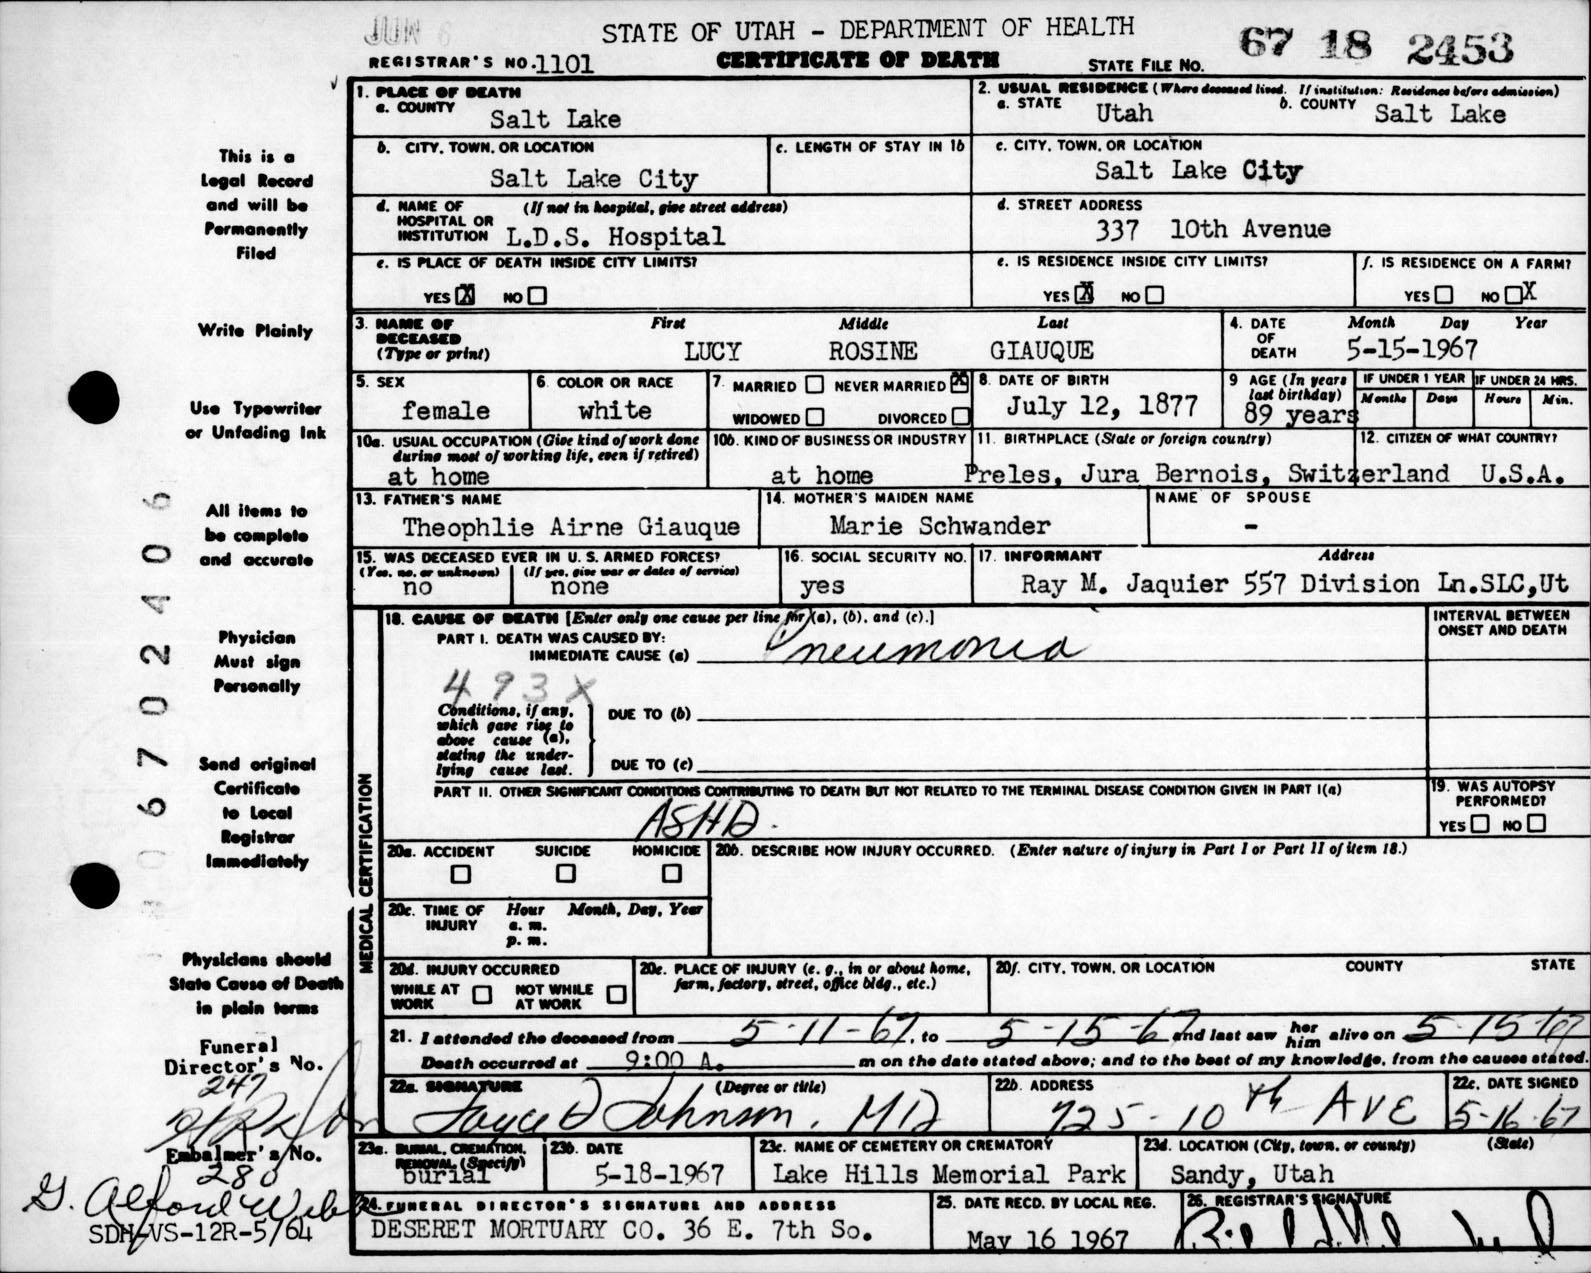 JUN 6
STATE OF UTAH - DEPARTMENT OF HEALTH
67 18 2453
REGISTRAR'S NO. 1101
CERTIFICATE OF DEATH
STATE FILE NO.
1. PLACE OF DEATH
a. COUNTY
Salt Lake
2. USUAL RESIDENCE (Where deceased lived. If institution: Residence before admission)
a. STATE Utah b. COUNTY Salt Lake
b. CITY, TOWN, OR LOCATION
Salt Lake City
c. LENGTH OF STAY IN 1b
c. CITY, TOWN, OR LOCATION
Salt Lake City
d. NAME OF HOSPITAL OR INSTITUTION (If not in hospital, give street address)
L.D.S. Hospital
d. STREET ADDRESS
337 10th Avenue
e. IS PLACE OF DEATH INSIDE CITY LIMITS?
YES X NO
e. IS RESIDENCE INSIDE CITY LIMITS?
YES X NO
f. IS RESIDENCE ON A FARM?
YES NO X
3. NAME OF DECEASED (Type or print)
First Middle Last
LUCY ROSINE GIAUQUE
4. DATE OF DEATH
Month Day Year
5-15-1967
5. SEX
female
6. COLOR OR RACE
white
7. MARRIED NEVER MARRIED X
WIDOWED DIVORCED
8. DATE OF BIRTH
July 12, 1877
9 AGE (In years last birthday)
89 years
IF UNDER 1 YEAR
Months Days
IF UNDER 24 HRS.
Hours Min.
10a. USUAL OCCUPATION (Give kind of work done during most of working life, even if retired)
at home
10b. KIND OF BUSINESS OR INDUSTRY
at home
11. BIRTHPLACE (State or foreign country)
Preles, Jura Bernois, Switzerland
12. CITIZEN OF WHAT COUNTRY?
U.S.A.
13. FATHER'S NAME
Theophlie Airne Giauque
14. MOTHER'S MAIDEN NAME
Marie Schwander
NAME OF SPOUSE
-
15. WAS DECEASED EVER IN U. S. ARMED FORCES?
(Yes, no, or unknown) (If yes, give war or dates of service)
no none
16. SOCIAL SECURITY NO.
yes
17. INFORMANT Address
Ray M. Jaquier 557 Division Ln.SLC,Ut
MEDICAL CERTIFICATION
18. CAUSE OF DEATH [Enter only one cause per line for (a), (b), and (c).]
PART I. DEATH WAS CAUSED BY:
IMMEDIATE CAUSE (a) Pneumonia
INTERVAL BETWEEN ONSET AND DEATH
493X
Conditions, if any, which gave rise to above cause (a), stating the underlying cause last.
DUE TO (b)
DUE TO (c)
PART II. OTHER SIGNIFICANT CONDITIONS CONTRIBUTING TO DEATH BUT NOT RELATED TO THE TERMINAL DISEASE CONDITION GIVEN IN PART I(a)
ASHD.
19. WAS AUTOPSY PERFORMED?
YES NO
20a. ACCIDENT SUICIDE HOMICIDE
20b. DESCRIBE HOW INJURY OCCURRED. (Enter nature of injury in Part I or Part II of item 18.)
20c. TIME OF INJURY Hour Month, Day, Year
a. m.
p. m.
20d. INJURY OCCURRED
WHILE AT WORK NOT WHILE AT WORK
20e. PLACE OF INJURY (e. g., in or about home, farm, factory, street, office bldg., etc.)
20f. CITY, TOWN, OR LOCATION COUNTY STATE
21. I attended the deceased from 5-11-67, to 5-15-67 and last saw her him alive on 5-15-67
Death occurred at 9:00 A. m on the date stated above; and to the best of my knowledge, from the causes stated.
22a. SIGNATURE (Degree or title)
Joyce D Johnson, MD
22b. ADDRESS
725-10th AVE
22c. DATE SIGNED
5-16-67
23a. BURIAL, CREMATION, REMOVAL (Specify)
burial
23b. DATE
5-18-1967
23c. NAME OF CEMETERY OR CREMATORY
Lake Hills Memorial Park
23d. LOCATION (City, town, or county) (State)
Sandy, Utah
24. FUNERAL DIRECTOR'S SIGNATURE AND ADDRESS
DESERET MORTUARY CO. 36 E. 7th So.
25. DATE RECD. BY LOCAL REG.
May 16 1967
26. REGISTRAR'S SIGNATURE
This is a
Legal Record
and will be
Permanently
Filed
Write Plainly
Use Typewriter
or Unfading Ink
All items to
be complete
and accurate
Physician
Must sign
Personally
Send original
Certificate
to Local
Registrar
Immediately
Physicians should
State Cause of Death
in plain terms
Funeral
Director's No.
247
Embalmer's No.
280
G. Alford
SDH-VS-12R-5/64
06702406